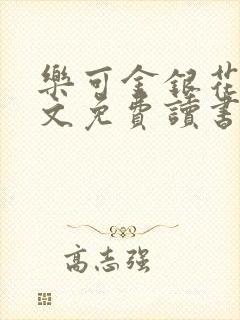 樂可金銀花
文免費讀書
高志强